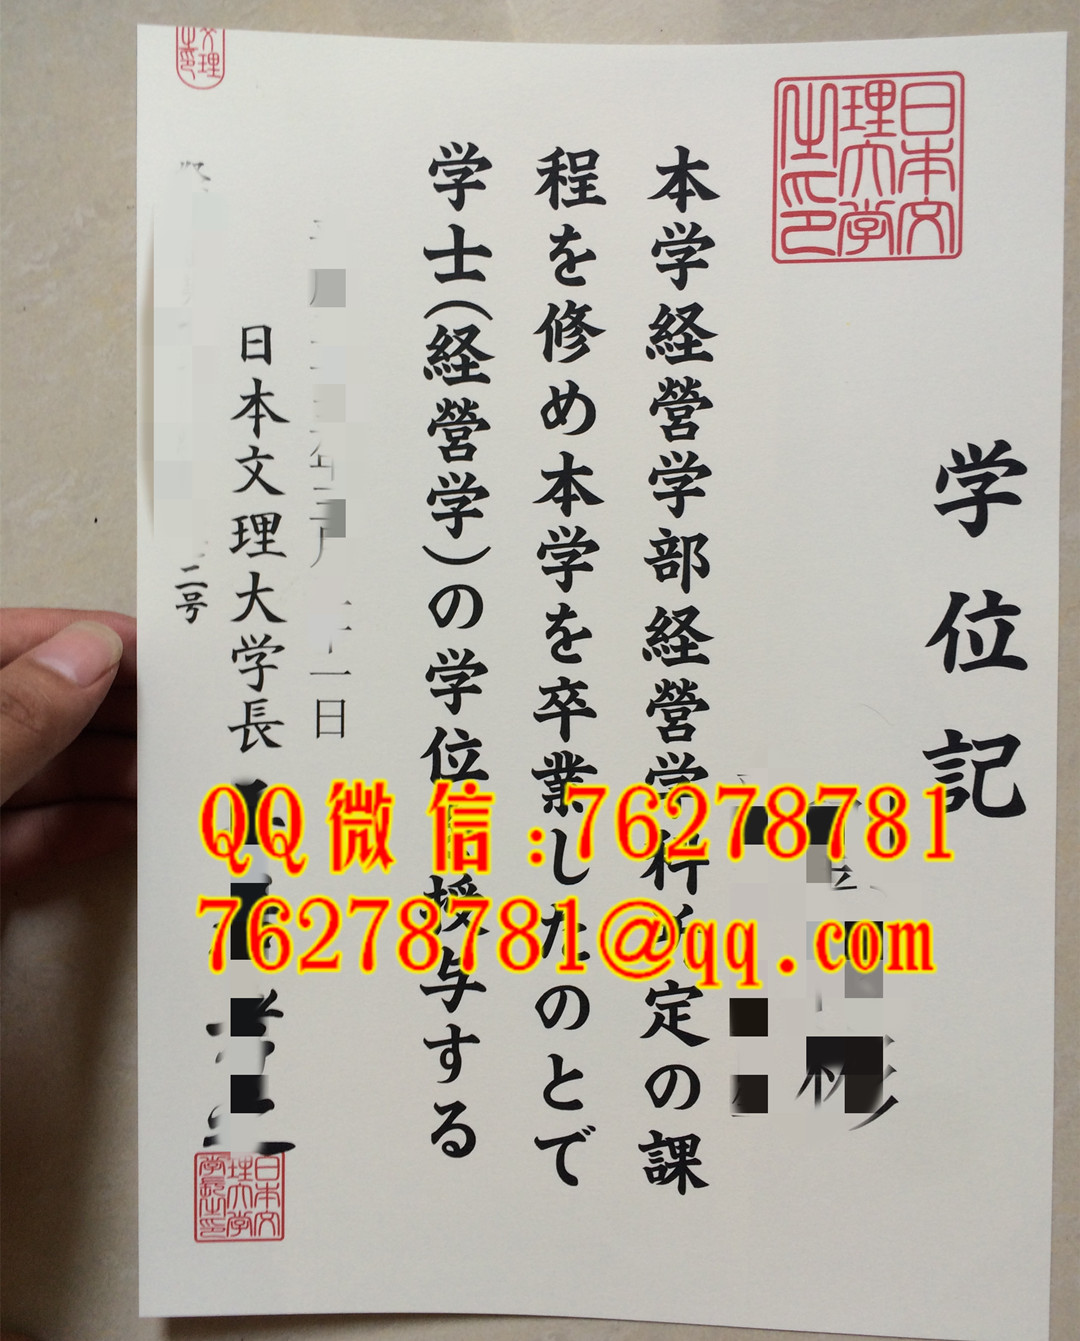 学位記
日本文
理大学
之印
本学経営学部経営学科所定の課
程を修め本学を卒業したのとで
学士(経営学)の学位を授与する
十一日
日本文理大学長
二号
日本文
理大学
学長之印
QQ微信:76278781
76278781@qq.com